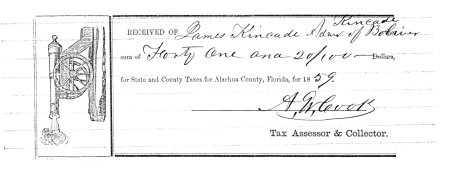 Kincade
RECEIVED OF James Kincade Admr of Boliver
sum of Forty One and 20/100 Dollars,
for State and County Taxes for Alachua County, Florida, for 1859.
A. W. Cook
Tax Assessor & Collector.